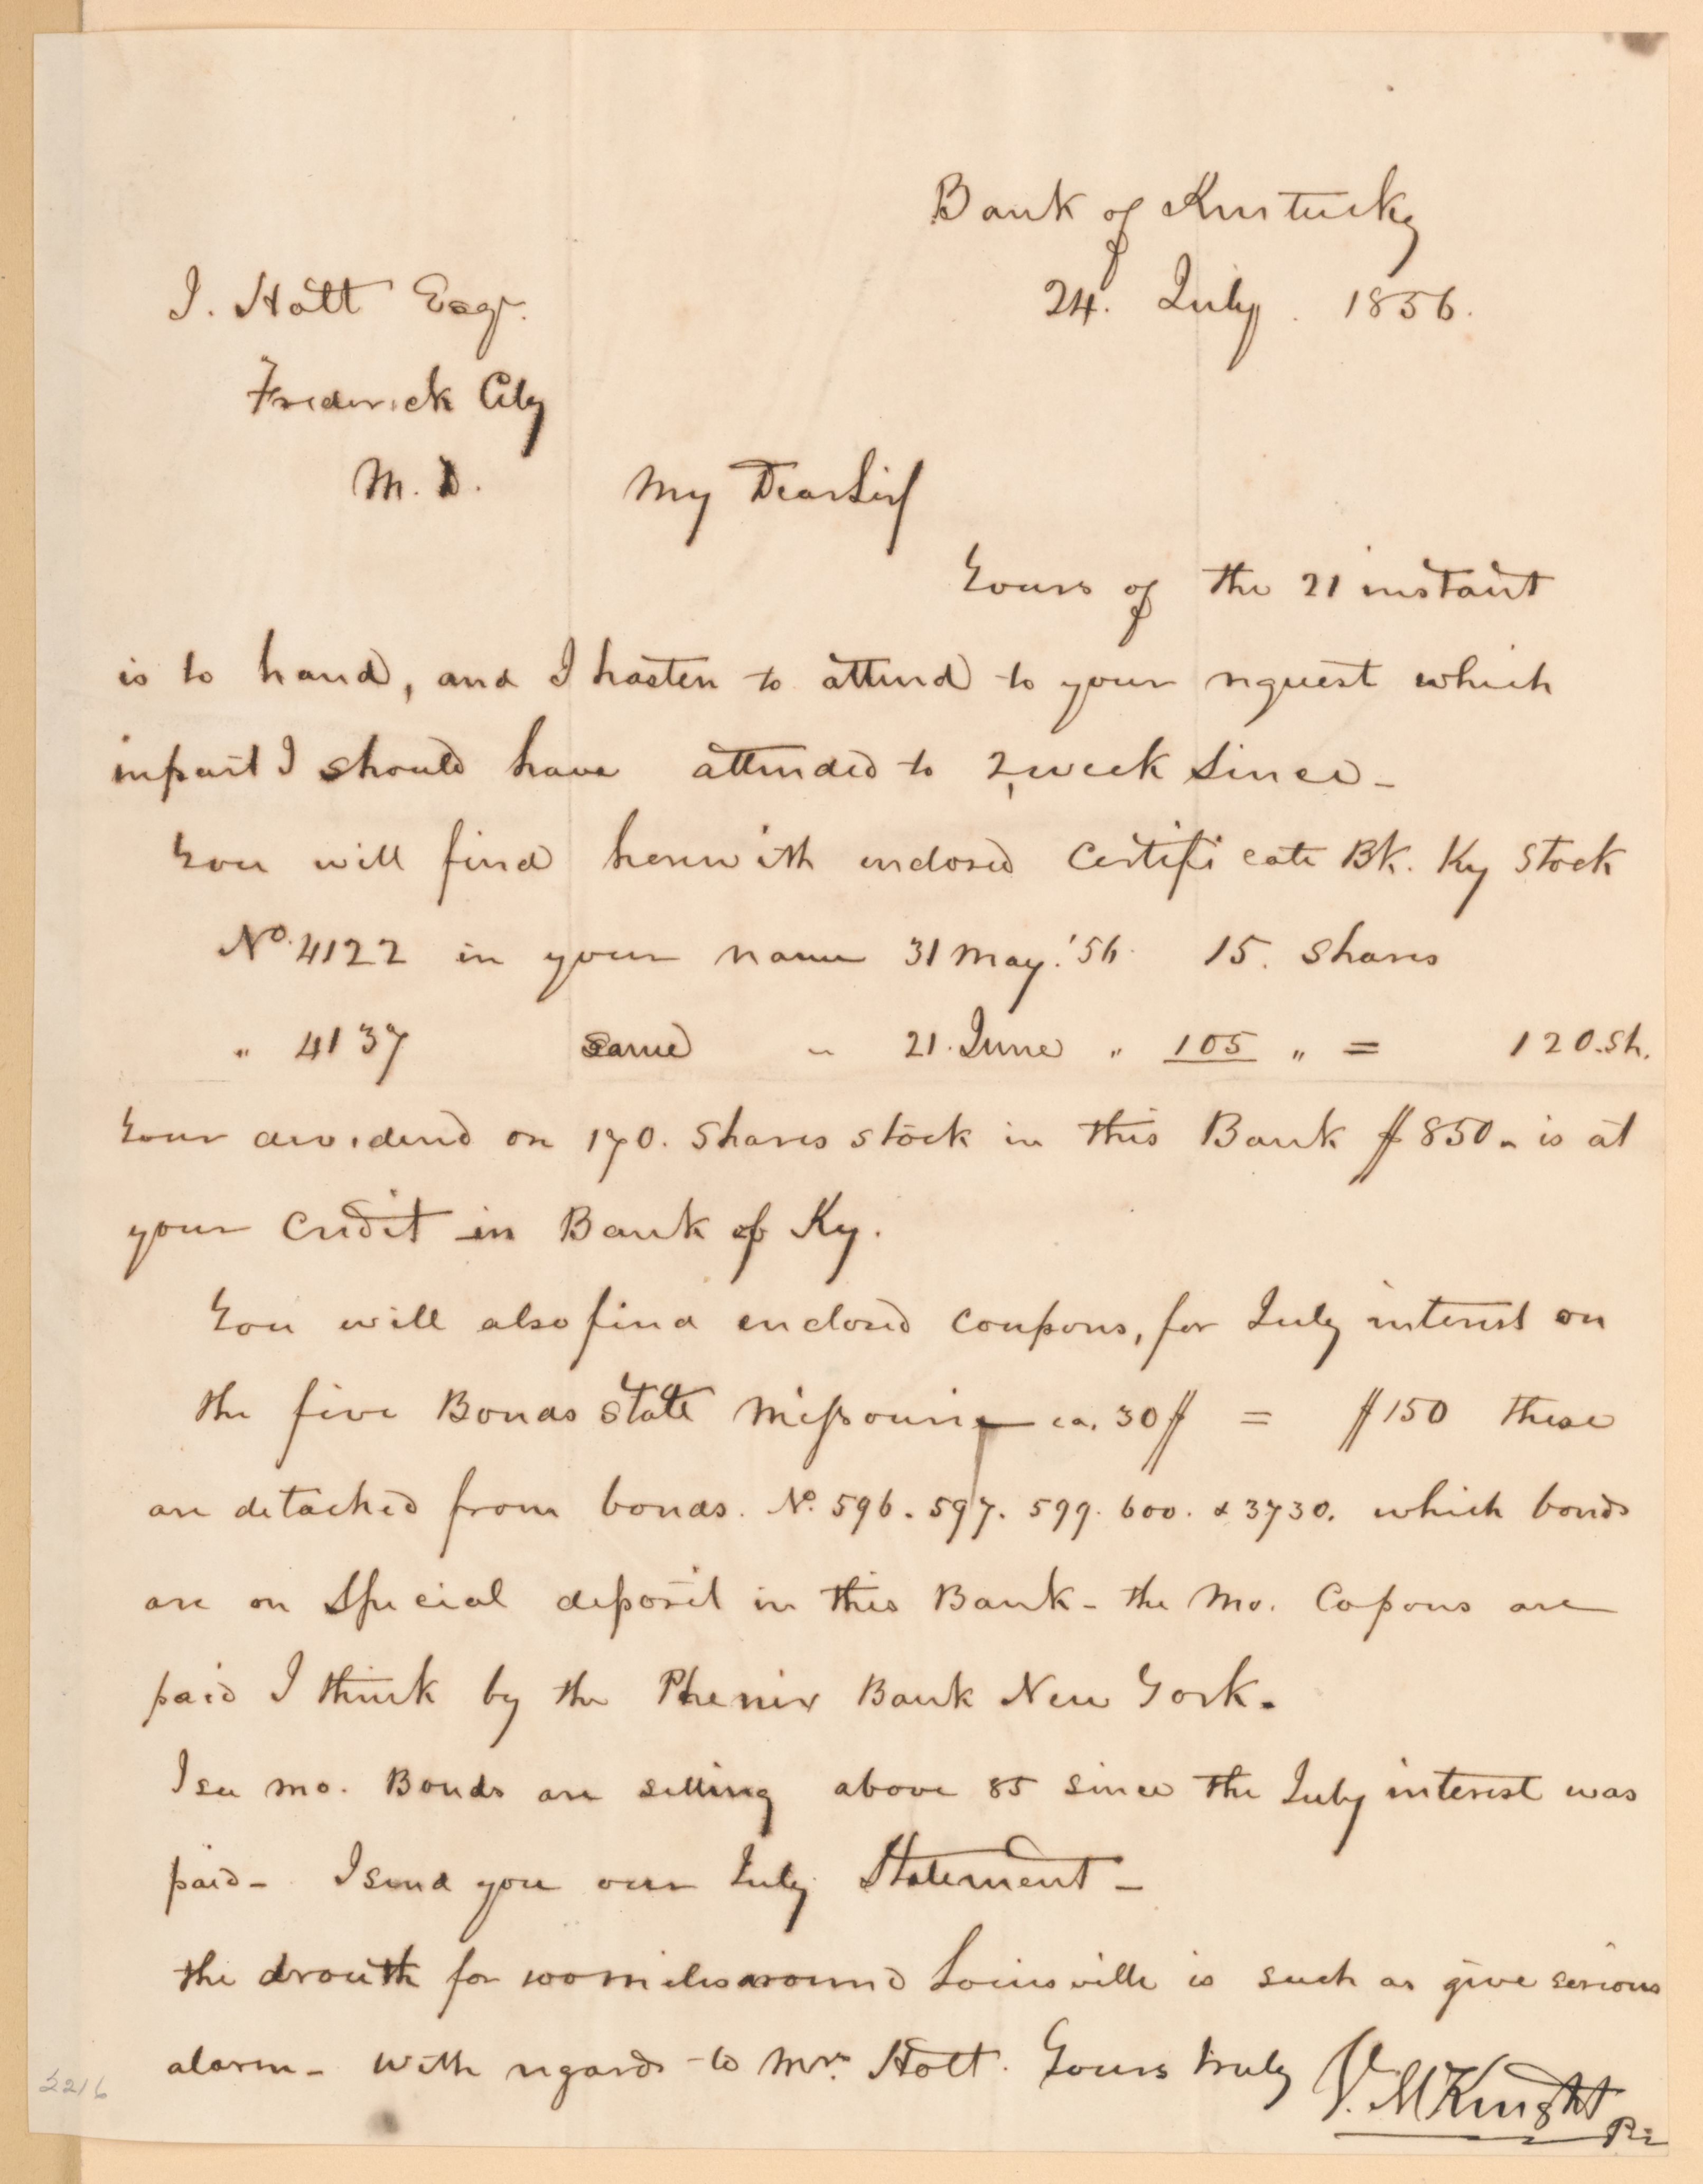 Bank of Kentucky
24. July. 1856.
J. Holt Esqr.
Frederick City
M. D.
My Dear Sir
Yours of the 21 instant
is to hand, and I hasten to attend to your request which
in part I should have attended to 2, week since –
You will find herewith enclosed Certificate Bk. Ky Stock
No. 4122 in your name 31 May. '56. 15. Shares
" 4137 same " 21. June " 105 " = 120. Sh.
Your dividend on 170. Shares stock in this Bank $850 – is at
your credit in Bank of Ky.
You will also find enclosed coupons, for July interest on
the five Bonds State Missouri – ea. 30$ = $150 these
are detached from bonds. No. 596. 597. 599. 600. & 3730. which bonds
are on Special deposit in this Bank – the Mo. Copons are
paid I think by the Phenix Bank New York.
I see Mo. Bonds are selling above 85 since the July interest was
paid – I send you our July Statement –
the drouth for 100 miles around Louisville is such as give serious
alarm – with regards to Mrs. Holt. Yours truly V. McKnight
Pr
2216